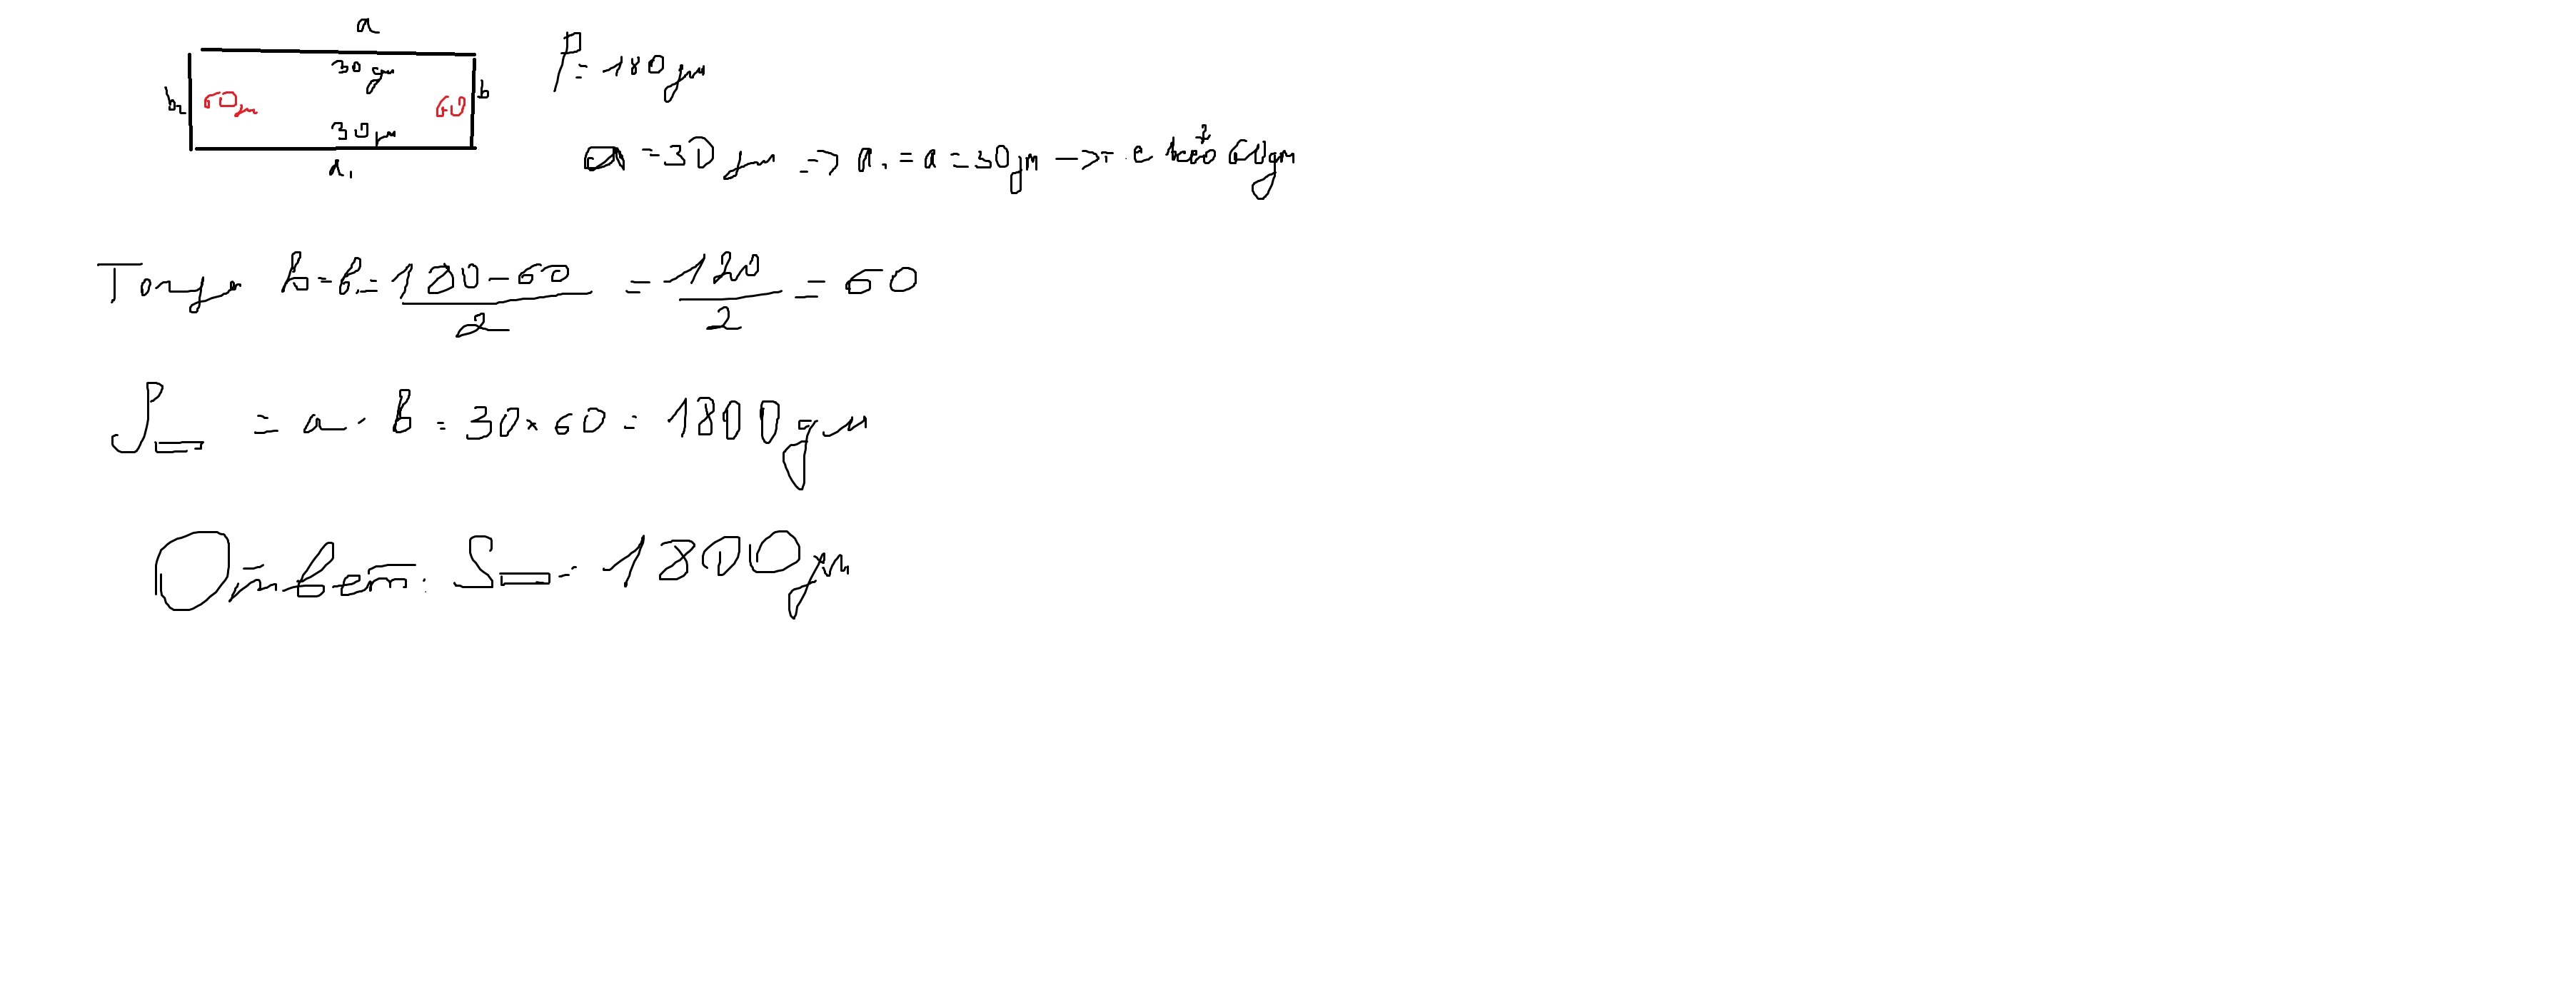 a
30 дм
b₂ 60м 60 b
30 дм
a₁
P = 180 дм
a = 30 дм => a₁ = a = 30 дм -> т.е всего 60 дм
Тогда b = b₁ = (180 - 60)/2 = 120/2 = 60
S▭ = a · b = 30 × 60 = 1800 дм
Ответ: S▭ = 1800 дм